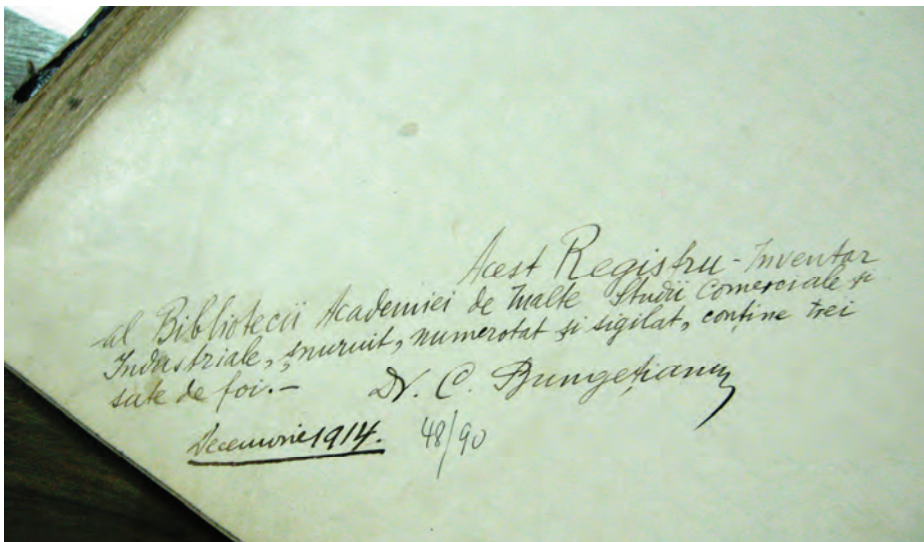 Acest Registru-Inventar
al Bibliotecii Academiei de Inalte Studii Comerciale și
Industriale, șnuruit, numerotat și sigilat, conține trei
sute de foi.— Dr. C. Bungețianu
Decemvrie 1914. 48/90